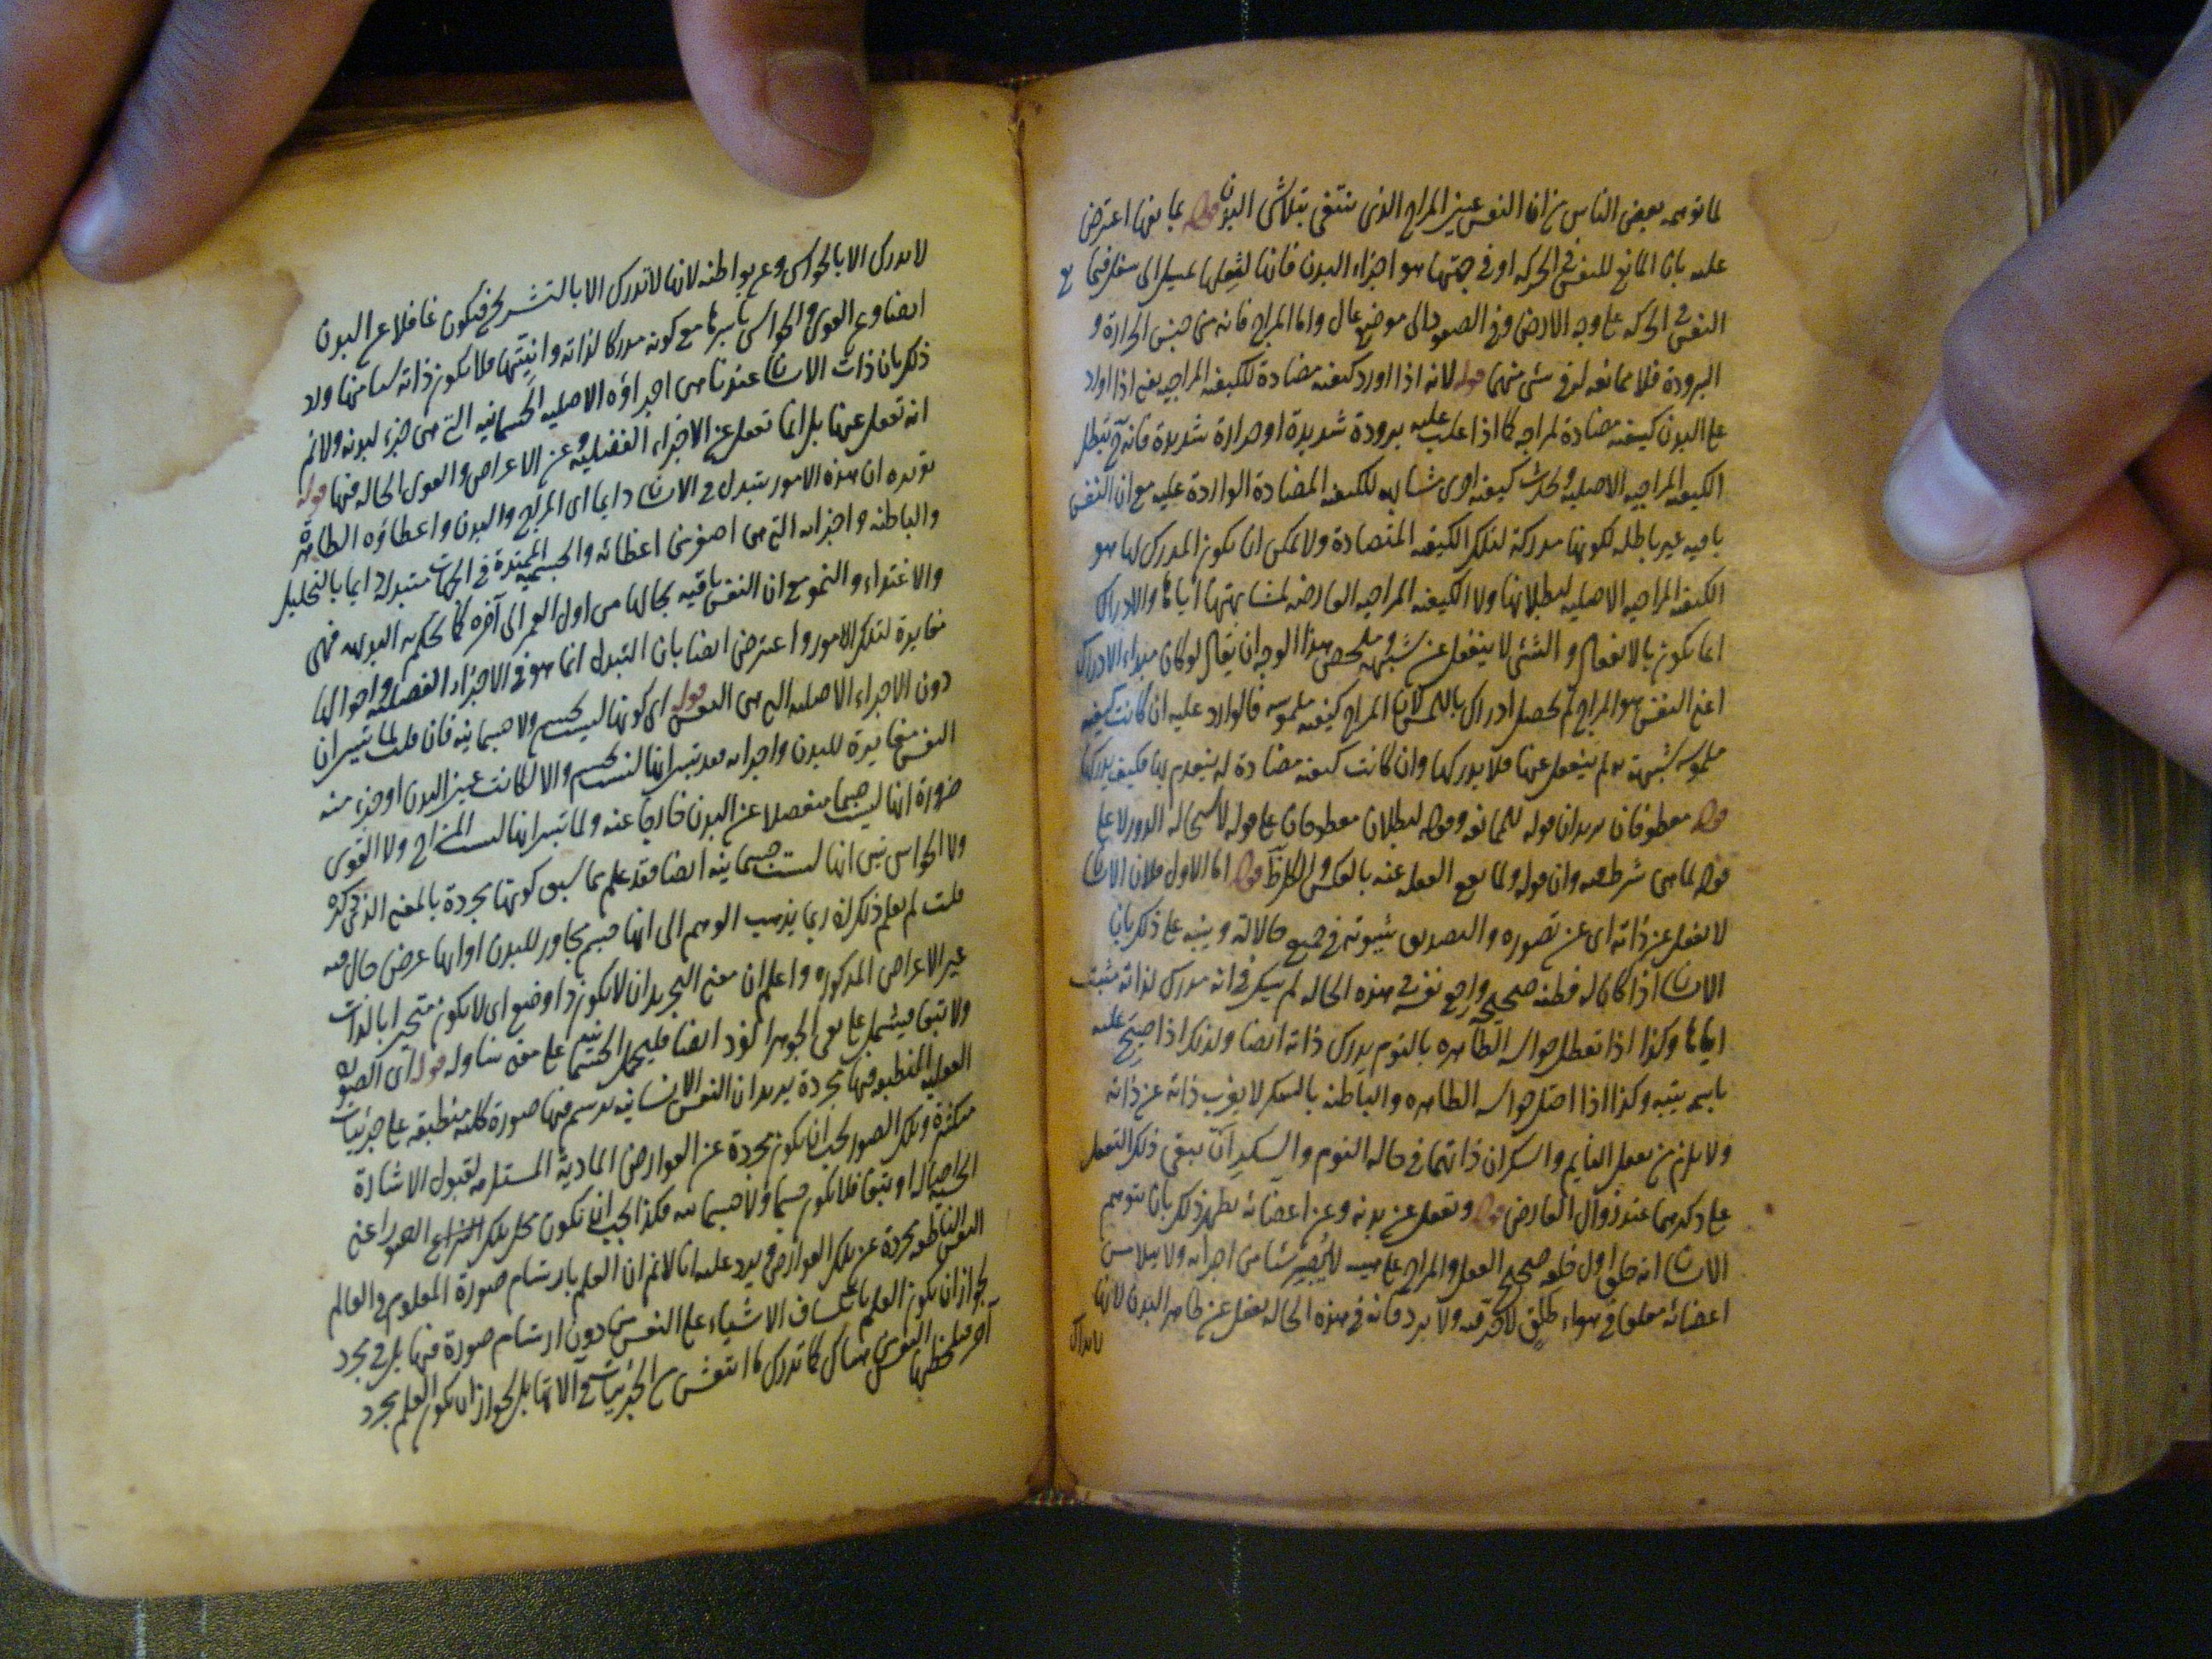 لما توهمه بعض الناس من ان النفس عين المزاج الذى ينتفى بتلاشى البدن قوله مما يعها اعترض
عليه بان المانع للنفس فى الحركة او فى جهتها هو اجزاء البدن فانها لثقلها تميل الى سفل فيمانع
النفس فى الحركة على وجه الارض وفى الصعود الى موضع عال واما المزاج فانه من جنس الحرارة و
البرودة فلا ممانعة له فى شئ منهما قوله لانه اذا اورد كيفية مضادة للكيفية المزاجية يعنى اذا اورد
على البدن كيفية مضادة لمزاجه كما اذا غلب عليه برودة شديدة او حرارة شديدة فانه ح تبطل
الكيفية المزاجية الاصلية وتحدث كيفية اخرى مشابهة للكيفية المضادة الواردة عليه مع ان النفس
باقية غير باطلة لكونها مدركة لتلك الكيفية المتضادة ولا يمكن ان يكون المدرك لها هو
الكيفية المزاجية الاصلية لبطلانها ولا الكيفية المزاجية العارضة لمشابهتها اياها والادراك
انما يكون بالانفعال والشئ لا ينفعل عن شبيهه وملخص هذا الوجه ان يقال لو كان مبداء الادراك
اعنى النفس هو المزاج لم يحصل ادراك باللمس لان المزاج كيفية ملموسة فالوارد عليه ان كانت كيفية
ملموسة شبيهة به لم ينفعل عنها فلا يدركها وان كانت كيفية مضادة له ينعدم بها فكيف يدركها
قوله معطوفان يريد ان قوله للممانعة وقوله لبطلان معطوفان على قوله لاستحالة الدور لا على
قوله لما هى شرط فيه وان قوله ولما يقع الغفلة عنه بالعكس والكل ظ قوله اما الاول فلان الانسان
لا يغفل عن ذاته اى عن تصوره والتصديق بثبوته فى جميع حالاته وينبه على ذلك بان
الانسان اذا كان له فطنة صحيحة وراجع نفسه فى هذه الحالة لم يشك فى انه مدرك لذاته مثبت
اياها وكذا اذا تعطل حواسه الظاهرة بالنوم يدرك ذاته ايضا ولذلك اذا صيح عليه
باسمه يتنبه وكذا اذا اختل حواسه الظاهرة والباطنة بالسكر لا يعزب ذاته عن ذاته
ولا يلزم من تعقل النايم والسكران ذاتهما فى حالة النوم والسكر ان يبقى ذلك التعقل
على ذكرهما عند زوال العارض قوله ويغفل عن بدنه وعن اعضائه يظهر ذلك بان يتوهم
الانسان انه خلق اول خلقه صحيح العقل والمزاج على هيئة لا يبصر شيئا من اجزائه ولا يتلامس
اعضائه معلق فى هواء طلق لا حر فيه ولا برد فانه فى هذه الحالة يغفل عن ظاهر البدن لانها
لا يدرك
لا يدرك الا بالحواس وعن بواطنه لانها لا تدرك الا بالتشريح فيكون غافلا عن البدن
ايضا وعن القوى والحواس باسرها مع كونه مدركا لذاته وانيتها فلا يكون ذاته شيئا منها ورد
ذلك بان ذات الانسان عندنا هى اجزاؤه الاصلية الجسمانية التى هى جزء لبدنه ولا نم
انه تغفل عنها بل انما تغفل عن الاجزاء الفضلية وعن الاعراض والقوى الحالة فيها قوله
يؤيده ان هذه الامور يتبدل فى الانسان دايما اى المزاج والبدن واعضاؤه الظاهرة
والباطنة واجزائه التى هى اصغر من اعضائه والجسمية الممتدة فى الجهات متبدلة دايما بالتحليل
والاغتذاء والنمو مع ان النفس باقية بحالها من اول العمر الى آخره كما يحكم به البديهة فهى
مغايرة لتلك الامور واعترض ايضا بان التبدل انما هو فى الاجزاء الفضلية واحوالها
دون الاجزاء الاصلية التى هى النفس قوله اى كونها ليست بجسم ولا جسمانية فان قلت لما تبين ان
النفس مغايرة للبدن واجزائه فقد تبين انها ليست بجسم والا لكانت عين البدن او جزء منه
ضرورة انها ليست جسما منفصلا عن البدن خارجا عنه ولما تبين انها ليست المزاج ولا القوى
ولا الحواس تبين انها ليست جسمانية ايضا فقد علم مما سبق كونها مجردة بالمعنى الذى ذكره
قلت لم يعلم ذلك لانه ربما يذهب الوهم الى انها جسم مجاور للبدن او انها عرض حال فيه
غير الاعراض المذكورة واعلم ان معنى التجريد ان لا يكون ذا وضع اى لا يكون متحيزا بالذات
ولا تبعا فيشمل على نفى الجوهر الفرد ايضا فليحمل الجسمانية على معنى يتناوله قوله اى الصورة
العقلية المنطبعة فيها مجردة يريد ان النفس الانسانية يرتسم فيها صورة كلية منطبقة على جزئيات
متكثرة وتلك الصور يجب ان يكون مجردة عن العوارض المادية المستلزمة لقبول الاشارة
الحسية اصالة او تبعا فلا يكون جسما ولا جسمانية فكذا يجب ان يكون محل تلك الصور اعنى
النفس الناطقة مجردة عن تلك العوارض ويرد عليه انا لا نم ان العلم بارتسام صورة المعلوم فى العالم
لجواز ان يكون العلم بانكشاف الاشياء على النفس من دون ارتسام صورة فيها بل فى مجرد
آخر فيلحظها النفس من هناك كما تدرك ما انتقش من الجزئيات فى آلاتها بل لجواز ان يكون العلم بمجرد